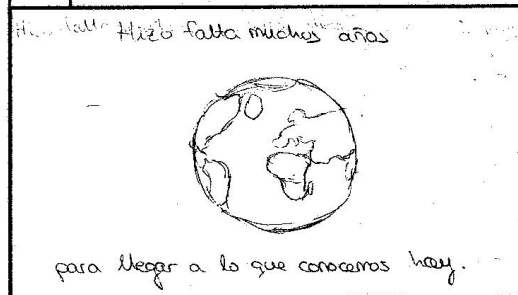 Hizo falta muchos años
para llegar a lo que conocemos hoy.